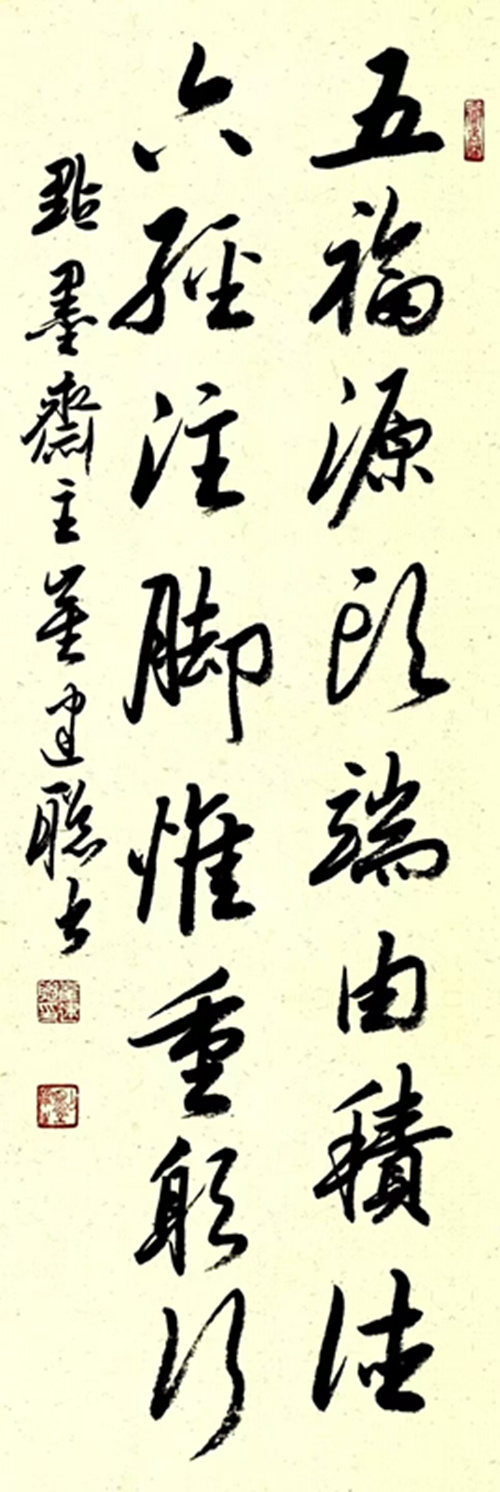 五福源頭端由積德
六經注脚惟重躬行
點墨齋主董建聰書